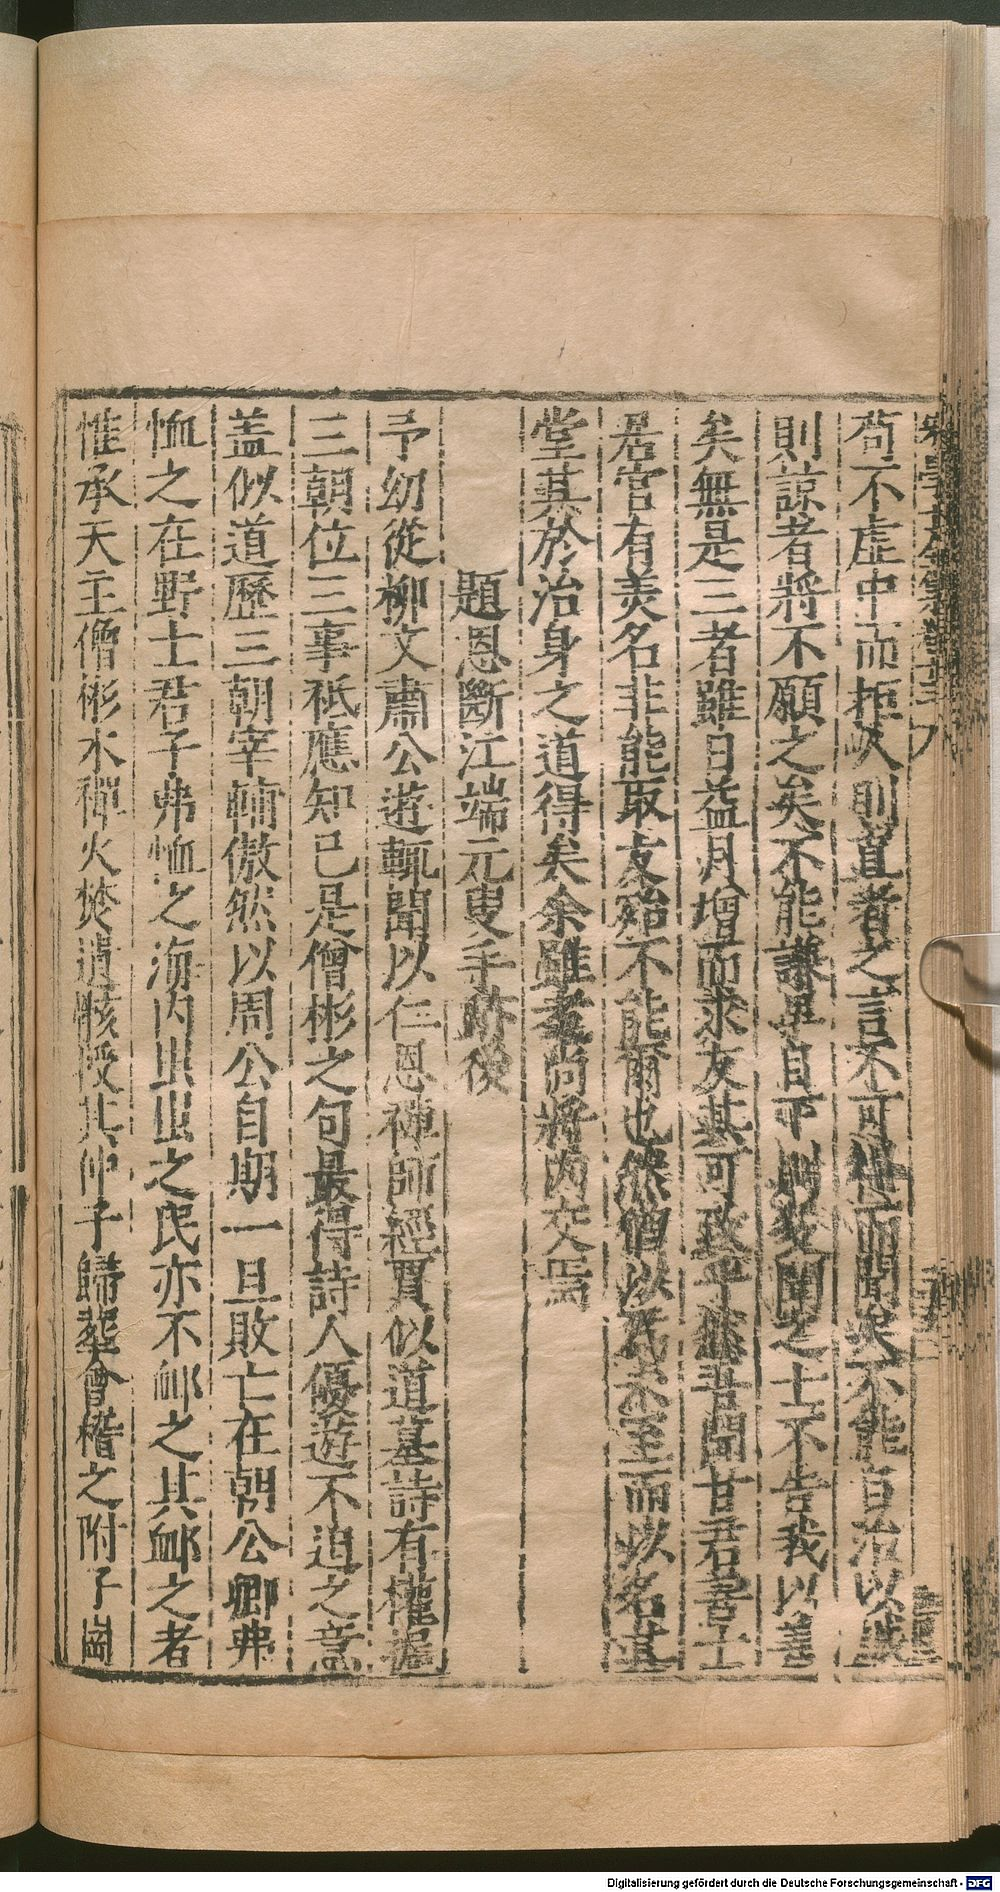 苟不虛中而拒人則直者之言不可得而聞矣不能自治以誠
則諒者將不願之矣不能謙卑自下則多聞之士不告我以善
矣無是三者雖日益月增而求友其可致乎余昔聞甘君善士
君宦有美名非能取友殆不能爾也然猶以爲未至而以名其
堂其於治身之道得矣余雖耄尚將內交焉
題恩斷江端元叟手跡後
予幼從柳文肅公遊輒聞以仁恩禪師經賈似道墓詩有權握
三朝位三事秪應知己是僧彬之句最得詩人優遊不迫之意
蓋似道歷三朝宰輔傲然以周公自期一旦敗亡在朝公卿弗
恤之在野士君子弗恤之海內出出之民亦不卹之其卹之者
惟承天主僧彬水禪火焚遺骸授其仲子歸葬會稽之附子崗
Digitalisierung gefördert durch die Deutsche Forschungsgemeinschaft - DFG